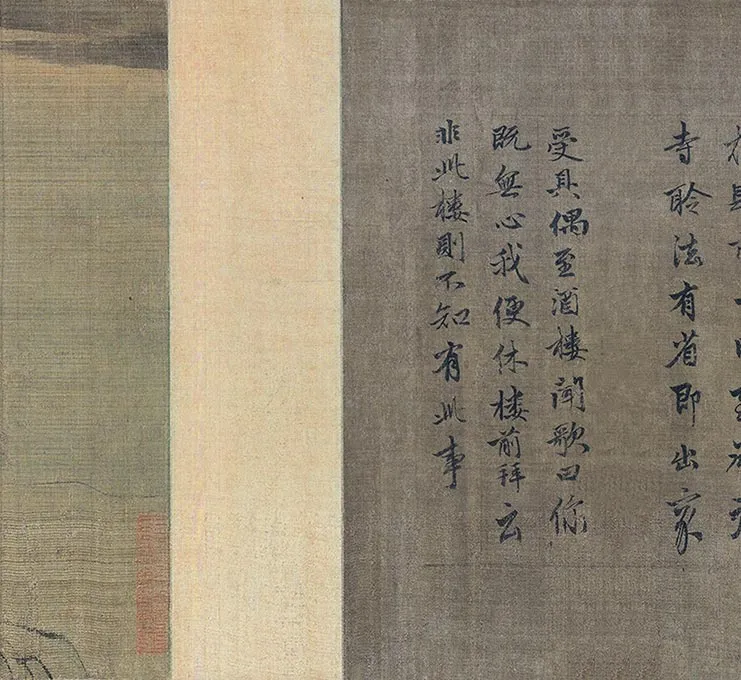 寺聆法有省即出家
受具偶至酒樓聞歌曰你
既無心我便休樓前拜云
非此樓則不知有此事